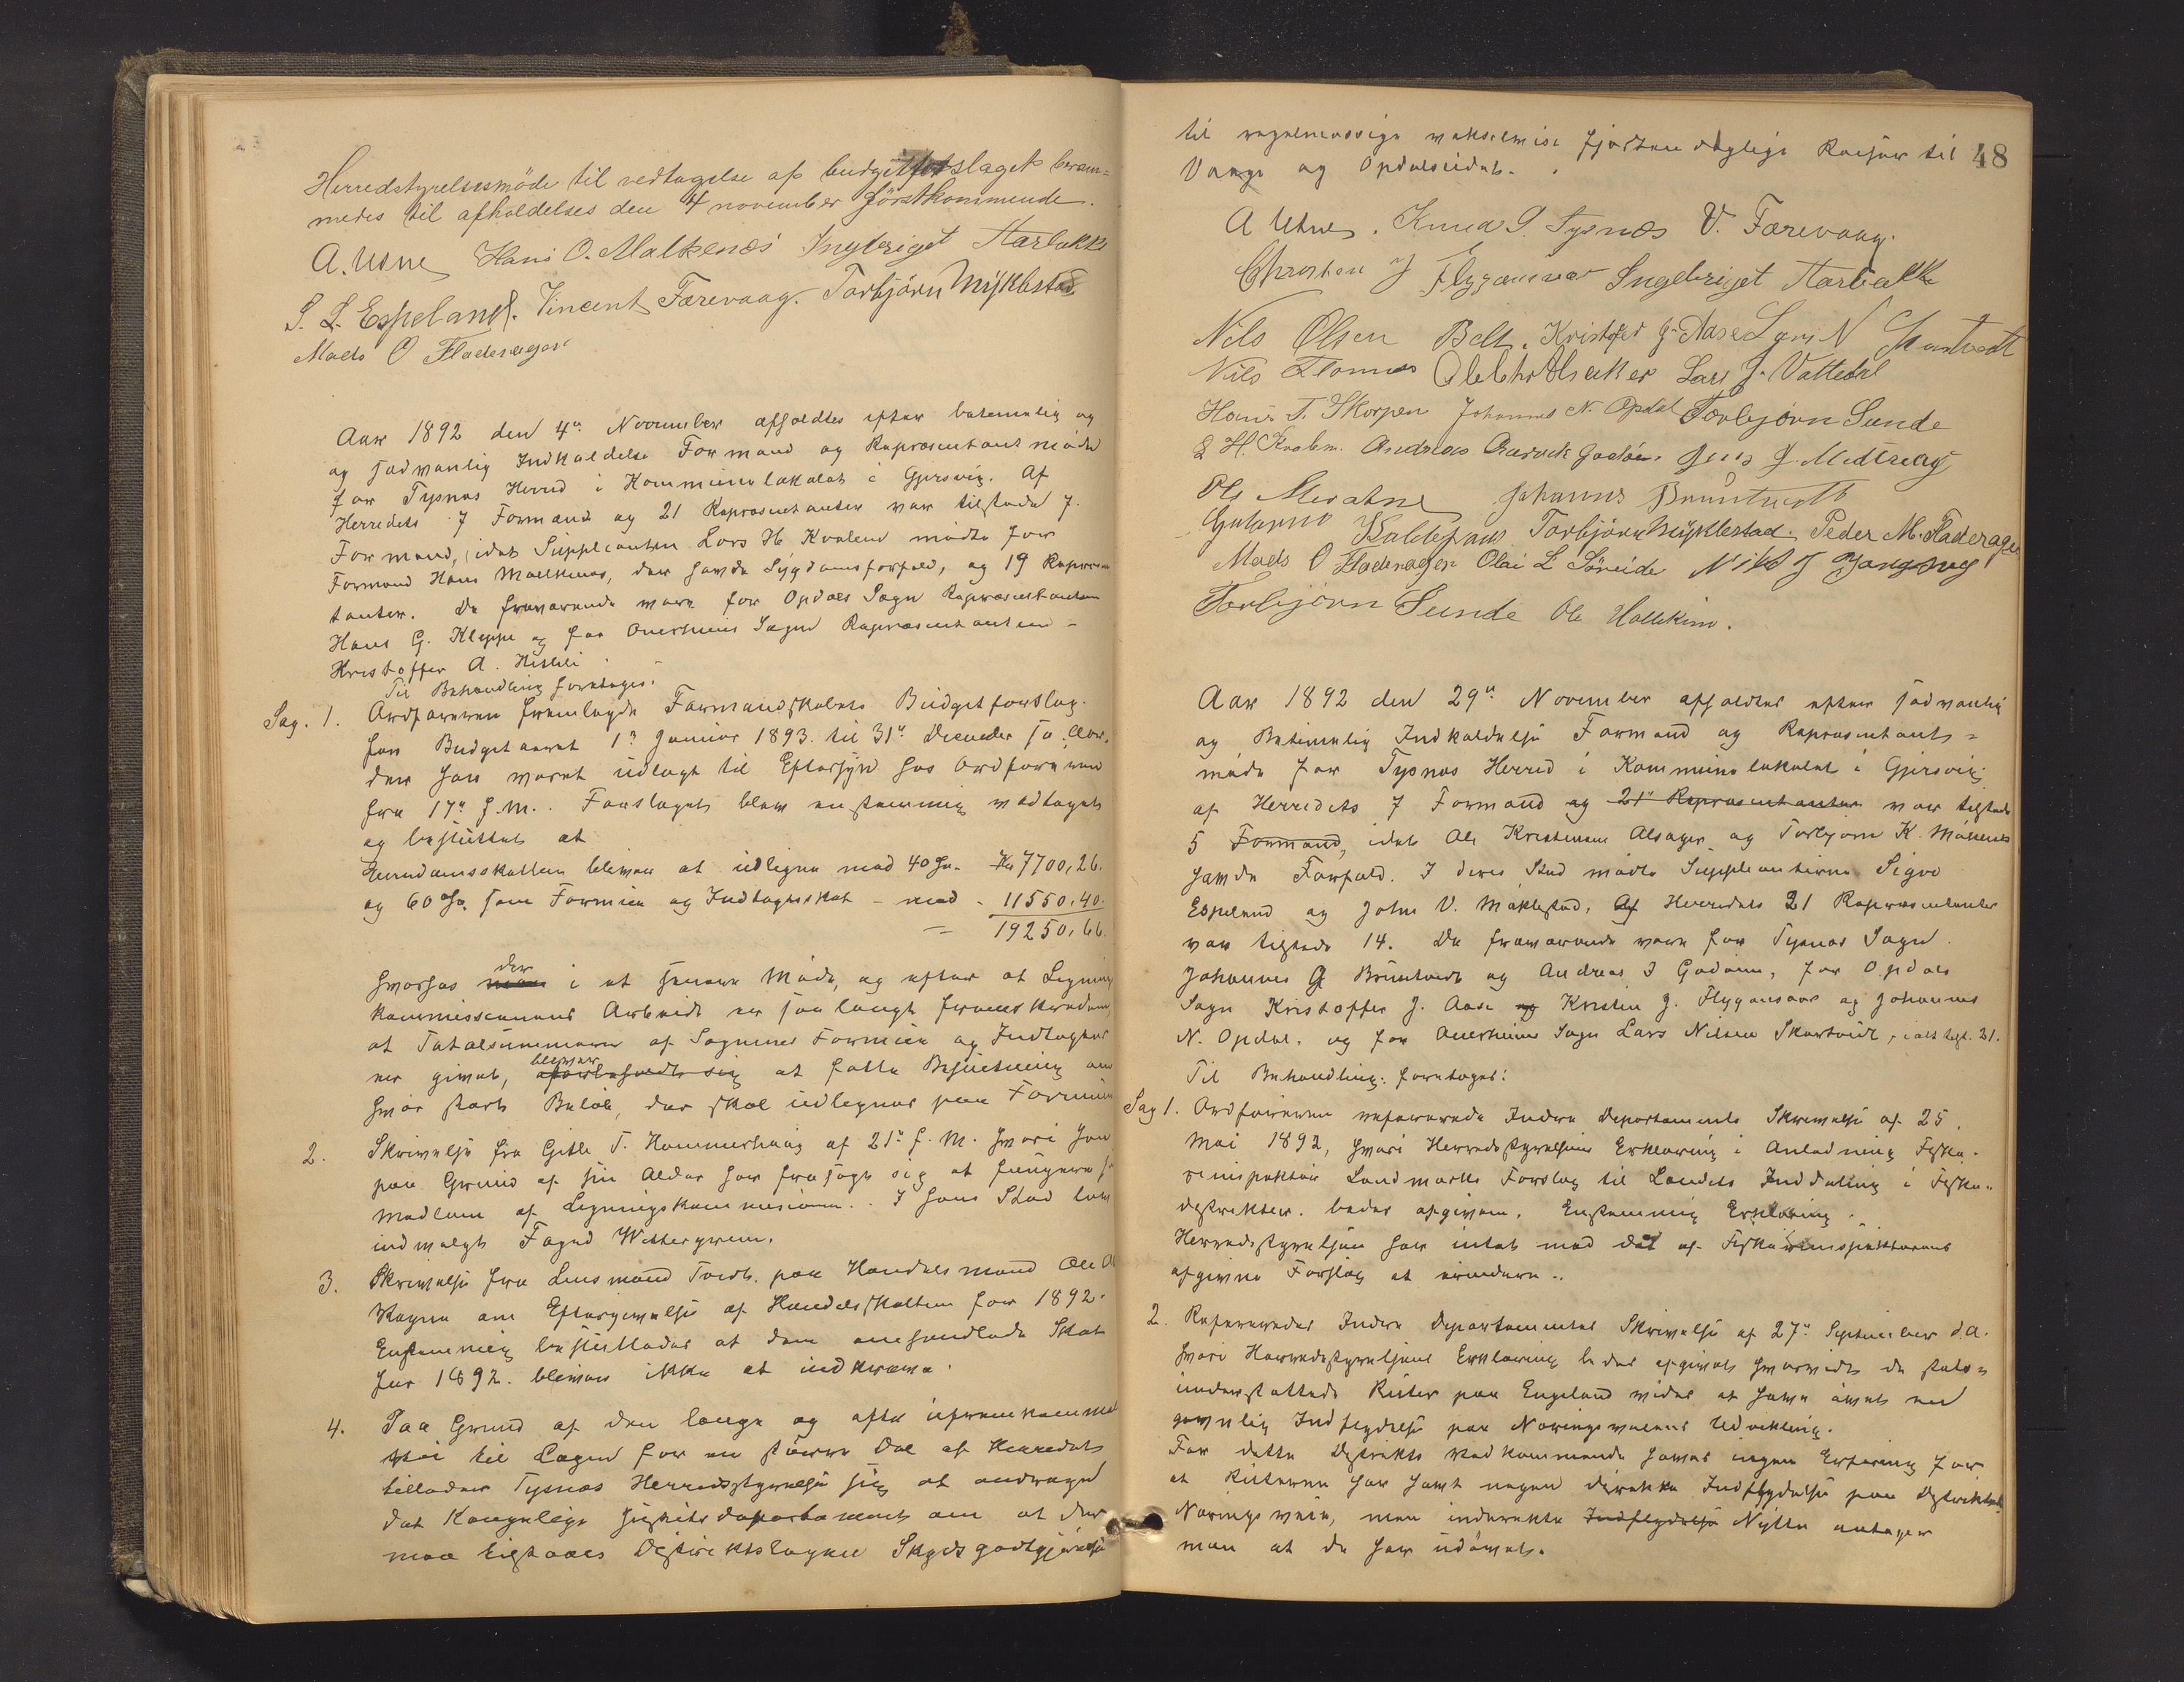 Herredstyrelsesmöde til vedtagelse af budgetforslaget beram=
medes til afholdelses den 4 november förstkommende.
A. Usne Hans O. Malkenæs Ingbrigt Harbakke
S. L. Espeland. Vincent Færevaag. Torbjörn Myklestad
Mads O Fladerager
Aar 1892 den 4de November afholdtes efter betimelig og
og sædvanlig Indkaldelse Formand og Repræsentant møde
for Tysnæs Herred i Kommunelokalet i Gjersvig. Af
Herredets 7 Formænd og 21 Repræsentanter var tilstede 7
Formænd, idet Suppleanten Lars H. Kvalem mødte for
Formand Hans Malkenæs, der havde Sygdomsforfald, og 19 Repræsen
tanter. De fraværende være for Opdals Sogn Repræsentanten
Hans G. Kleppe og for Onarheims Sogns Repræsentanten -
Kristoffer A.
Til Behandling foretoges:
Sag. 1. Ordføreren fremlagde Formandskabets Budgetforslag
for Budgetaaret 1ste Januar 1893 til 31te December s. Aar,
der har været udlagt til Eftersyn hos Ordføreren
fra 17de f. M. Forslaget blev enstemmig vedtaget
og besluttet at
Eiendomsskatten bliver at udligne med 40 %. Kr 7700,26.
og 60 % som Formue og Indtægtsskat - med - 11550.40.
- 19250,66.
hvorhos der i et senere Møde, og efter at Lignings
kommissionens Arbeide er saa langt fremskreden,
at Totalsummerne af Sognenes Formue og Indtægter
er givet, bliver at fatte Beslutning om
hvor stort Beløb, der skal udlignes paa Formue
2. Skrivelse fra Gitle T. Hammerhaug af 21de f. M. hvori han
paa Grund af sin Alder har frasagt sig at fungere so
Medlem af Ligningskommissionen. I hans Sted blev
indvalgt Wethergrein.
3. Skrivelse fra Lensmand Tvedt, paa Handelsmand Ole O
om Eftergivelse af Handelsskatten for 1892.
Enstemmig besluttedes at den omhandlede Skat
for 1892. bliver ikke at indkræve.
4. Paa Grund af den lange og ofte ufremkommel
Vei til Lægen for en større Del af Herredet
tillader Tysnæs Herredsstyrelse sig at andrage
det Kongelige Justitsdepartement om at der
maa tilstaaes Distriktslægen Skydsgodtgjørelse
48
til regelmæssige vekselvise fjorten daglige Reiser til
Vaage og Opdalseidet.
A Usnes. Knud S Tysnæs V. Færevaag.
Christen J Flygansvær Ingebrigt Harbakke
Nils Olsen Belt. Kristofer J. Aase Lars N Skartvedt
Nils Flornes Ole Chr Alsaker Lars J. Vattedal
Hans T. Skorpen Johannes N. Opdal Torbjørn Sunde
L H. Kvalem. Andreas Godøen. Jens J. Midtvaag
Ole Johannes Bruntvedt
Torbjörn Myklestad. Peder M. Fladerager
Mads O Fladerager Olai L Söreide Nils J
Torbjörn Sunde Ole Hollekim.
Aar 1892 den 29de November afholdtes efter sædvanlig
og Betimelig Indkaldelse Formand og Repræsentant=
møde for Tysnæs Herred i Kommunelokalet i Gjersvig
af Herredets 7 Formænd og 21 Repræsentanter var tilstede
5 Formænd, idet Ole Kristensen Alsager og Torbjørn K.
havde Forfald. I deres Sted mødte Suppleanterne Sigvo
Espeland og John V. Møklestad, Af Herredets 21 Repræsentanter
var tilstede 14. De fraværende være for Tysnæs Sogn
Johannes G Bruntvedt og Andreas I Godøen, for Opdals
Sogn Kristoffer J. Aase og Kristen J. Flygansvær og Johannes
N. Opdal. og for Onerheims Sogn Lars Nilsen Skartveidt, - ialt tilst. 21.
Til Behandling: foretoges:
Sag 1. Ordføreren refererede Indre Departements Skrivelse af 25.
Mai 1892, hvori Herredsstyrelsens Erklæring i Anledning Fiske.
riinspektør Landmarks Forslag til Landets Inddeling i Fiske=
distrikter. bedes afgiven. Enstemmig Erklæring.
Herredsstyrelsen har intet mod det af Fiskeriinspektørens
afgivne Forslag at erindre..
2. Refereredes Indre Departementes Skrivelse af 27de September d.A.
hvori Herredsstyrelsens Erklæring bedes afgivet hvorvidt de stats=
understøttede Ruter paa England vides at have øvet en
gavnlig Indflydelse paa Næringsveiens Udvikling.
For dette Distrikts Vedkommende haves ingen Erfaring for
at Ruterne har havt nogen direkte Indflydelse paa Distriktets
Næringsveie, men inderekte Indflydelse Nytte antager
man at de har udøvet.